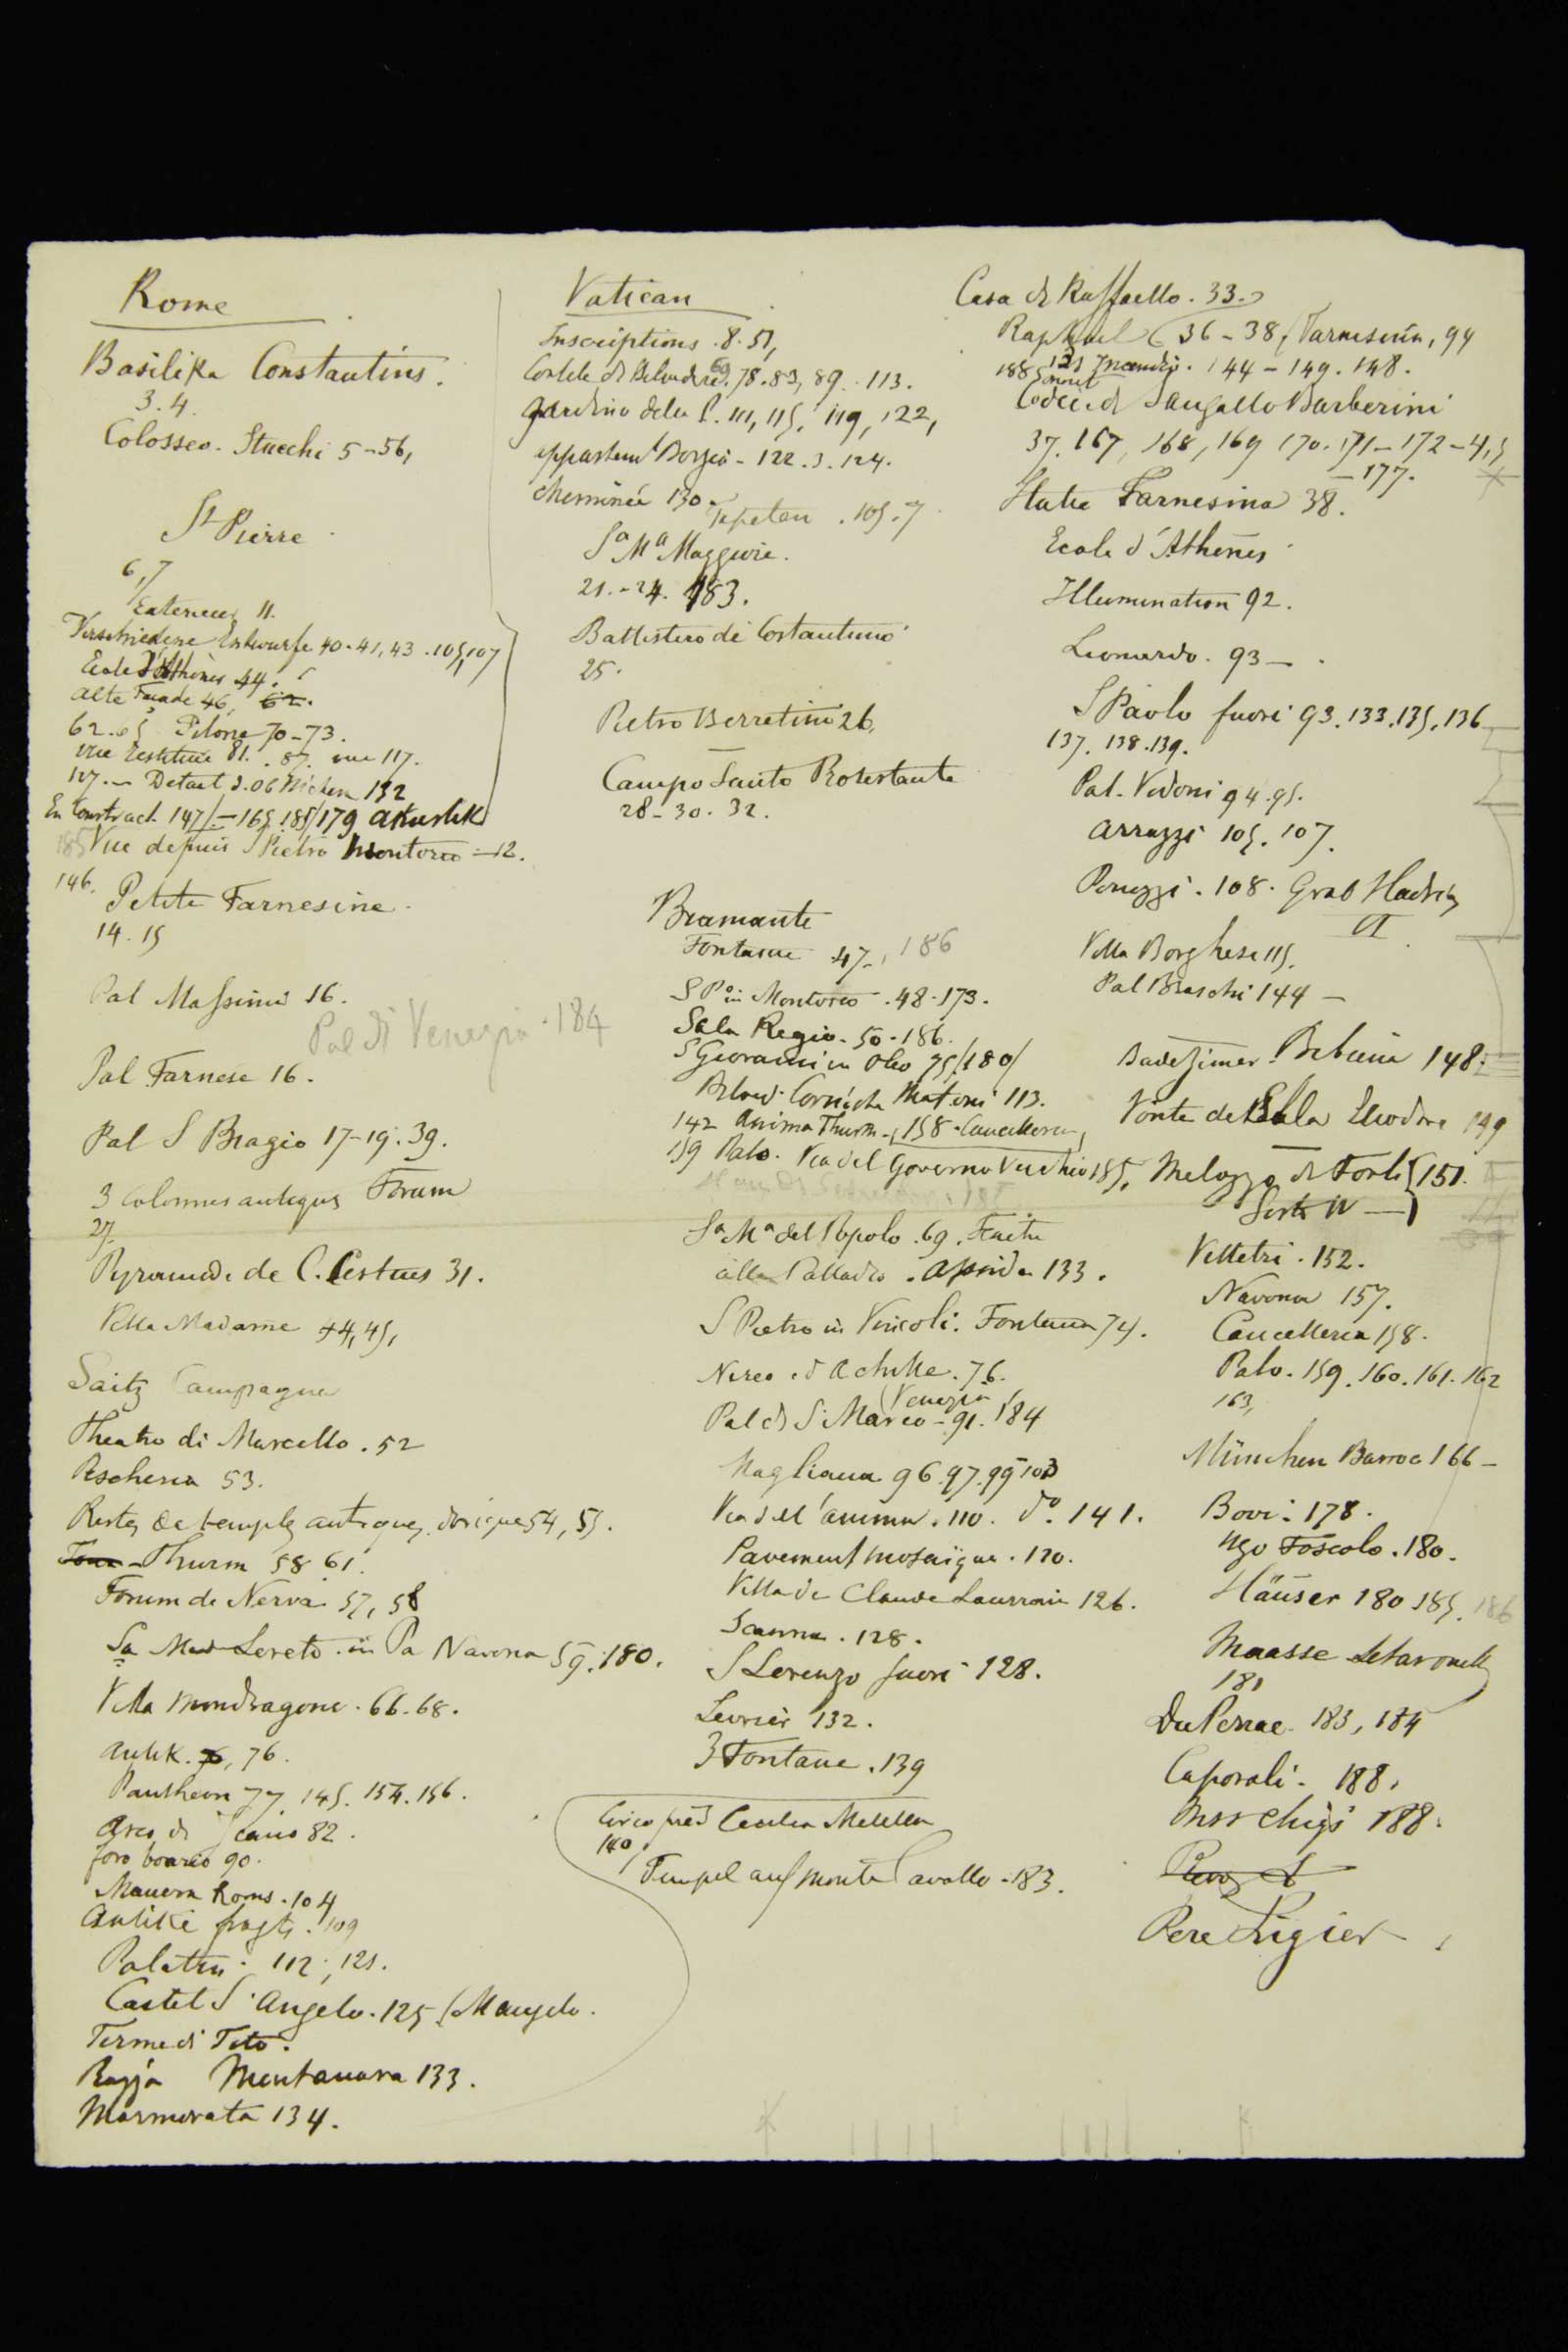 Rome
Basilika Constantins.
3.4.
Colosseo. Stucchi 5-56,
St Pierre
6,7
Exterieur 11.
Verschiedene Entwurfe 40-41, 43. 105, 107
Ecole d'Athènes 44.
alte Facade 46, 62.
62.65 Pilone 70-73.
vue restituée 81. . 87. vue 117.
127.- Detail 132
En Construct. 147/-165.185/179
185 Vue depuis S Pietro Montorio -12.
146.
Petite Farnesine.
14.15
Pal Massimi 16.
Pal di Venezia . 184
Pal Farnese 16.
Pal S Biagio 17-19.39.
3 Colonnes antiques Forum
27.
Pyramide de C. Cestius 31.
Villa Madame 44, 45,
Saitz Campagna
Theatro di Marcello . 52
Pescheria 53.
Restes de temples antiques, doriques 54, 55.
Thurm 58 61.
Forum de Nerva 57, 58
Sa Mad Loreto in Pa Navona 59.180.
Villa Mondragone. 66.68.
Antik. 76, 76.
Pantheon 77 145. 154. 156.
Arco di Jano 82.
foro boario 90.
Mauern Roms. 104
Antike fragts. 109
Palatin. 112, 121.
Castel S. Angelo. 125 (M angelo.
Terme di Tito.
Montanara 133.
Marmorata 134.
Vatican
Inscriptions . 8. 51,
Cortile di Belvedere. 69 78.83, 89. 113.
Giardino della P. 111, 115. 119, 122,
appartemt Borgia - 122.3.124.
Cheminée 130.
Tapeten . 105.7
Sa Ma Maggiore.
21.-24. 183.
Battistero di Costantino
25.
Pietro Berretini 26,
Campo Santo Protestante
28-30. 32.
Bramante
Fontaine 47-, 186
S Po in Montorio . 48-173.
Sala Regia. 50-186.
S Giovanni in Oleo 75/180/
Belved. 113.
142 Anima Thurm., 158. Cancelleria,
159 Palo. Via del Governo Vecchio 185,
Sa Ma del Popolo . 69.
alla Palladio. Apsida 133.
S Pietro in Vincoli. Fontana 74.
Nereo ed Achilleo. 76.
(Venezia
Pal di S. Marco - 91. 184
Magliana 96.97.99 103
Via dell'anima . 110. do. 141.
Pavement mosaïque . 120.
Villa de Claude Laurrain 126.
128.
S Lorenzo fuori 128.
132.
3 Fontane . 139
Circo Cecilia Metella
140
Tempel auf monte Cavallo - 183.
Casa di Raffaello. 33.
Raphael (36-38, Farnesina, 94
188 144-149. 148.
Codici di Sangallo Barberini
37. 167, 168, 169 170. 171-172-4,5
-177.
Stalle Farnesina 38.
Ecole d'Athènes
Illumination 92.
Leonardo. 93 -
S Paolo fuori 93. 133. 135. 136
137. 138. 139.
Pal. Vidoni 94.95.
Arrazzi 105. 107.
Peruzzi. 108. Grab Hadrian
VI
Villa Borghese 115.
Pal Braschi 144 -
Badezimer Bibiena 148.
149
Melozzo da Forli 151.
Sixte IV
Velletri . 152.
Navona 157.
Cancelleria 158.
Palo. 159. 160. 161. 162
163,
München Baroc 166 -
Bovi. 178.
Ugo Foscolo. 180.
Häuser 180 185. 186
Maasse Letarouilly
181
Du Perac. 183, 184
Caporali. 188.
Mss Chigi 188.
Pere Ligier